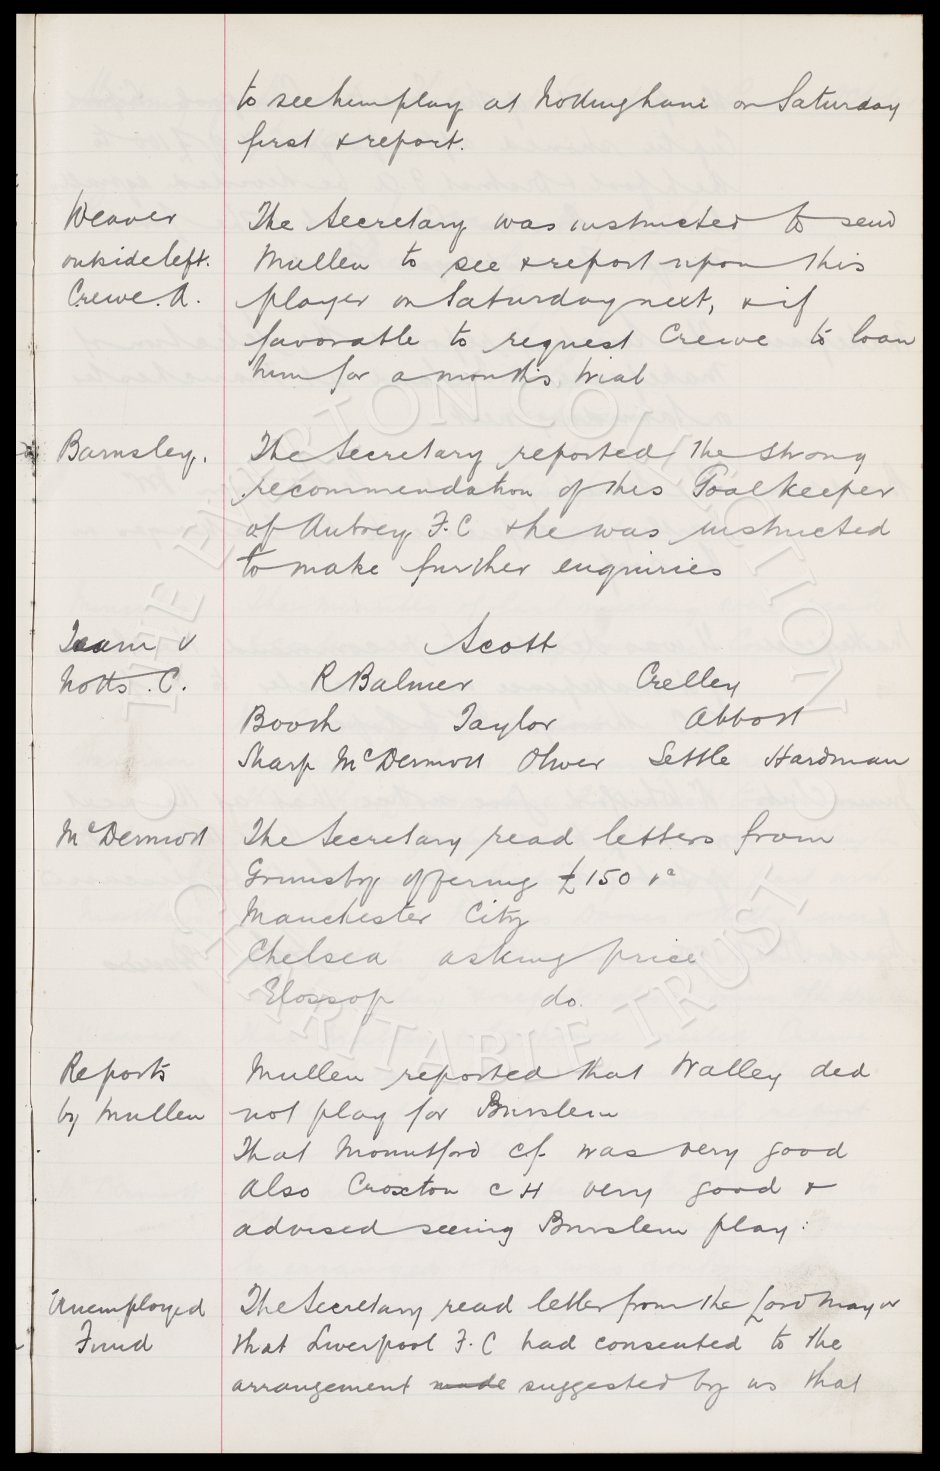 to see him play at Nottingham on Saturday
first & report.
Weaver
outside left.
Crewe. A.
The Secretary was instructed to send
Mullen to see & report upon this
player on Saturday next, & if
favorable to request Crewe to loan
him for a month's trial
Barnsley.
The Secretary reported the strong
recommendation of this Goalkeeper
of Autrey F.C & he was instructed
to make further enquiries
Team v
Notts. C.
Scott
R Balmer Crelley
Booth Taylor Abbott
Sharp McDermott Oliver Settle Hardman
McDermott
The Secretary read letters from
Grimsby offering £150
Manchester City
Chelsea asking price
Glossop do.
Reports
by Mullen
Mullen reported that Walley did
not play for Burslem
That Mountford cf. was very good
also Croxton c H very good &
advised seeing Burslem play:
Unemployed
Fund
The Secretary read letter from the Lord Mayor
that Liverpool F.C had consented to the
arrangement made suggested by us that
THE EVERTON COLLECTION
CHARITABLE TRUST